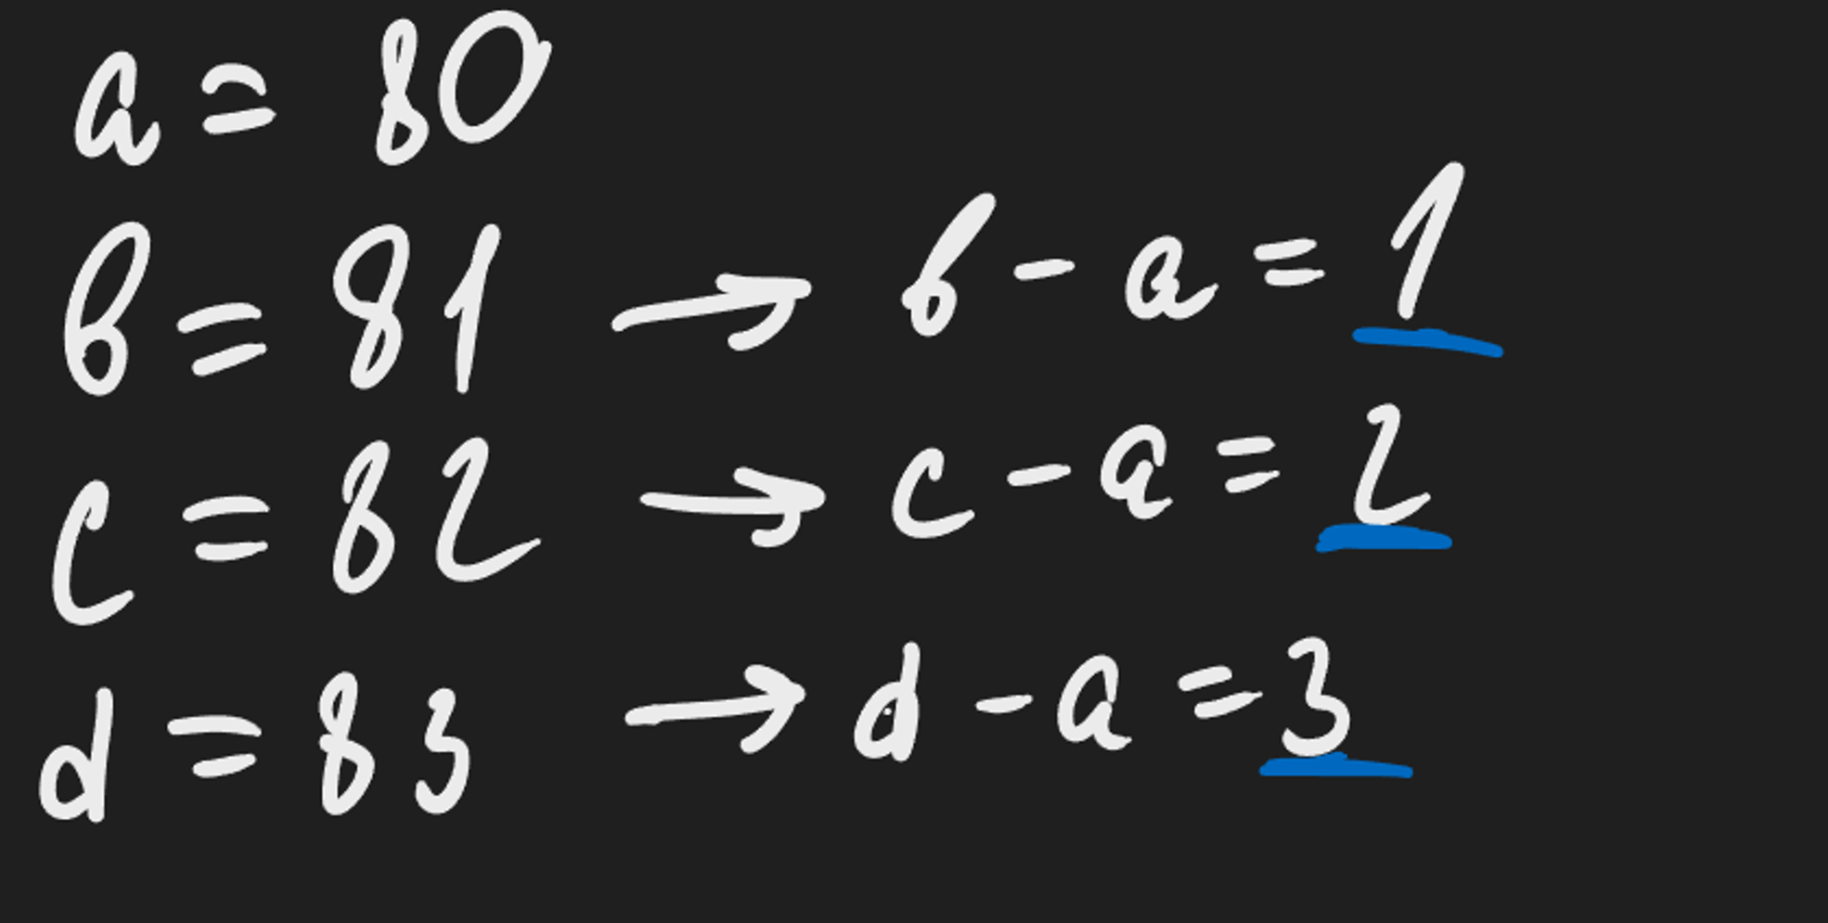 a = 80
b = 81 → b - a = 1
c = 82 → c - a = 2
d = 83 → d - a = 3